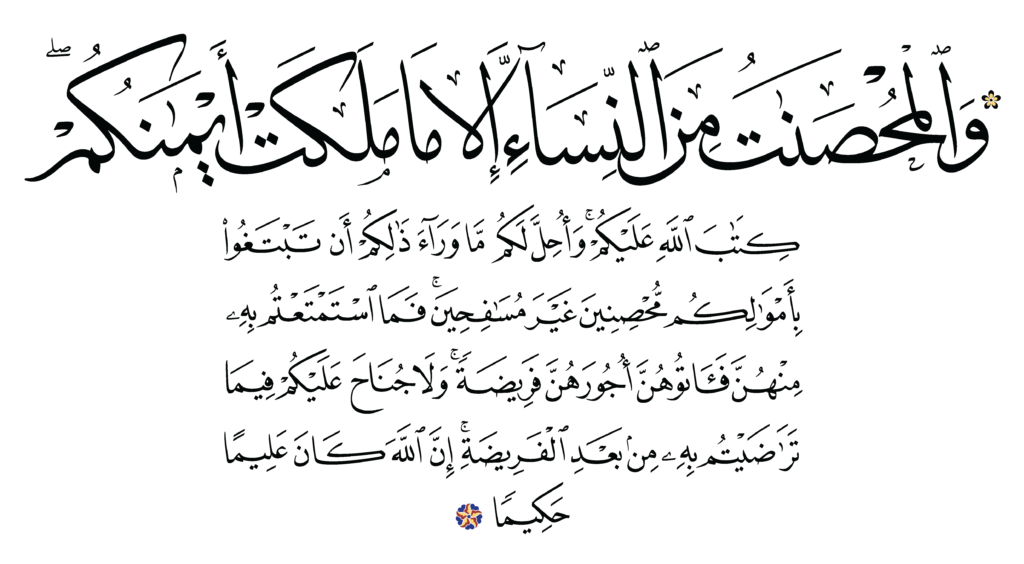 وَٱلْمُحْصَنَٰتُ مِنَ ٱلنِّسَآءِ إِلَّا مَا مَلَكَتْ أَيْمَٰنُكُمْ ۖ
كِتَٰبَ ٱللَّهِ عَلَيْكُمْ ۚ وَأُحِلَّ لَكُم مَّا وَرَآءَ ذَٰلِكُمْ أَن تَبْتَغُوا۟
بِأَمْوَٰلِكُم مُّحْصِنِينَ غَيْرَ مُسَٰفِحِينَ ۚ فَمَا ٱسْتَمْتَعْتُم بِهِۦ
مِنْهُنَّ فَـَٔاتُوهُنَّ أُجُورَهُنَّ فَرِيضَةً ۚ وَلَا جُنَاحَ عَلَيْكُمْ فِيمَا
تَرَٰضَيْتُم بِهِۦ مِنۢ بَعْدِ ٱلْفَرِيضَةِ ۚ إِنَّ ٱللَّهَ كَانَ عَلِيمًا
حَكِيمًا